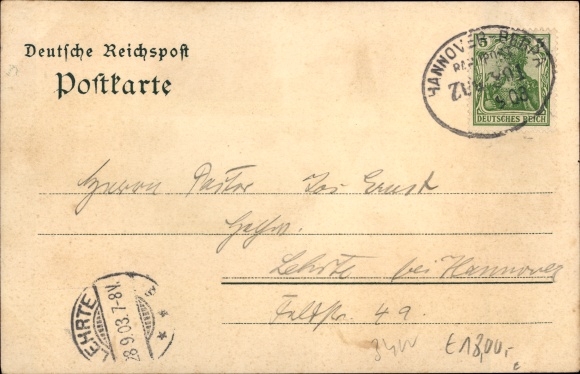 Deutsche Reichspost
Postkarte
HANNOVER
BAHNPOST
ZUG
DEUTSCHES REICH
Herrn Pastor Ernst
Lehrte bei Hannover
Feldstr. 49.
LEHRTE
28.9.03.7-8V.
€18,00,-